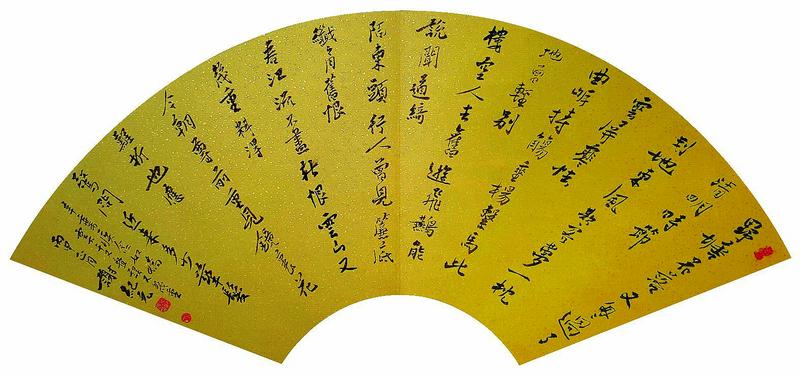 野塘花落又匆匆過了
清明時節
剗地東風欺客夢一枕
雲屏寒怯
曲岸持觴垂楊繫馬此
地曾輕別
樓空人去舊遊飛燕能
說聞道綺
陌東頭行人曾見簾底
纖纖月舊恨
春江流不盡新恨雲山又
幾重料得
今朝尊前重見鏡裏花
難折也應
驚問近來多少華髮
辛棄疾